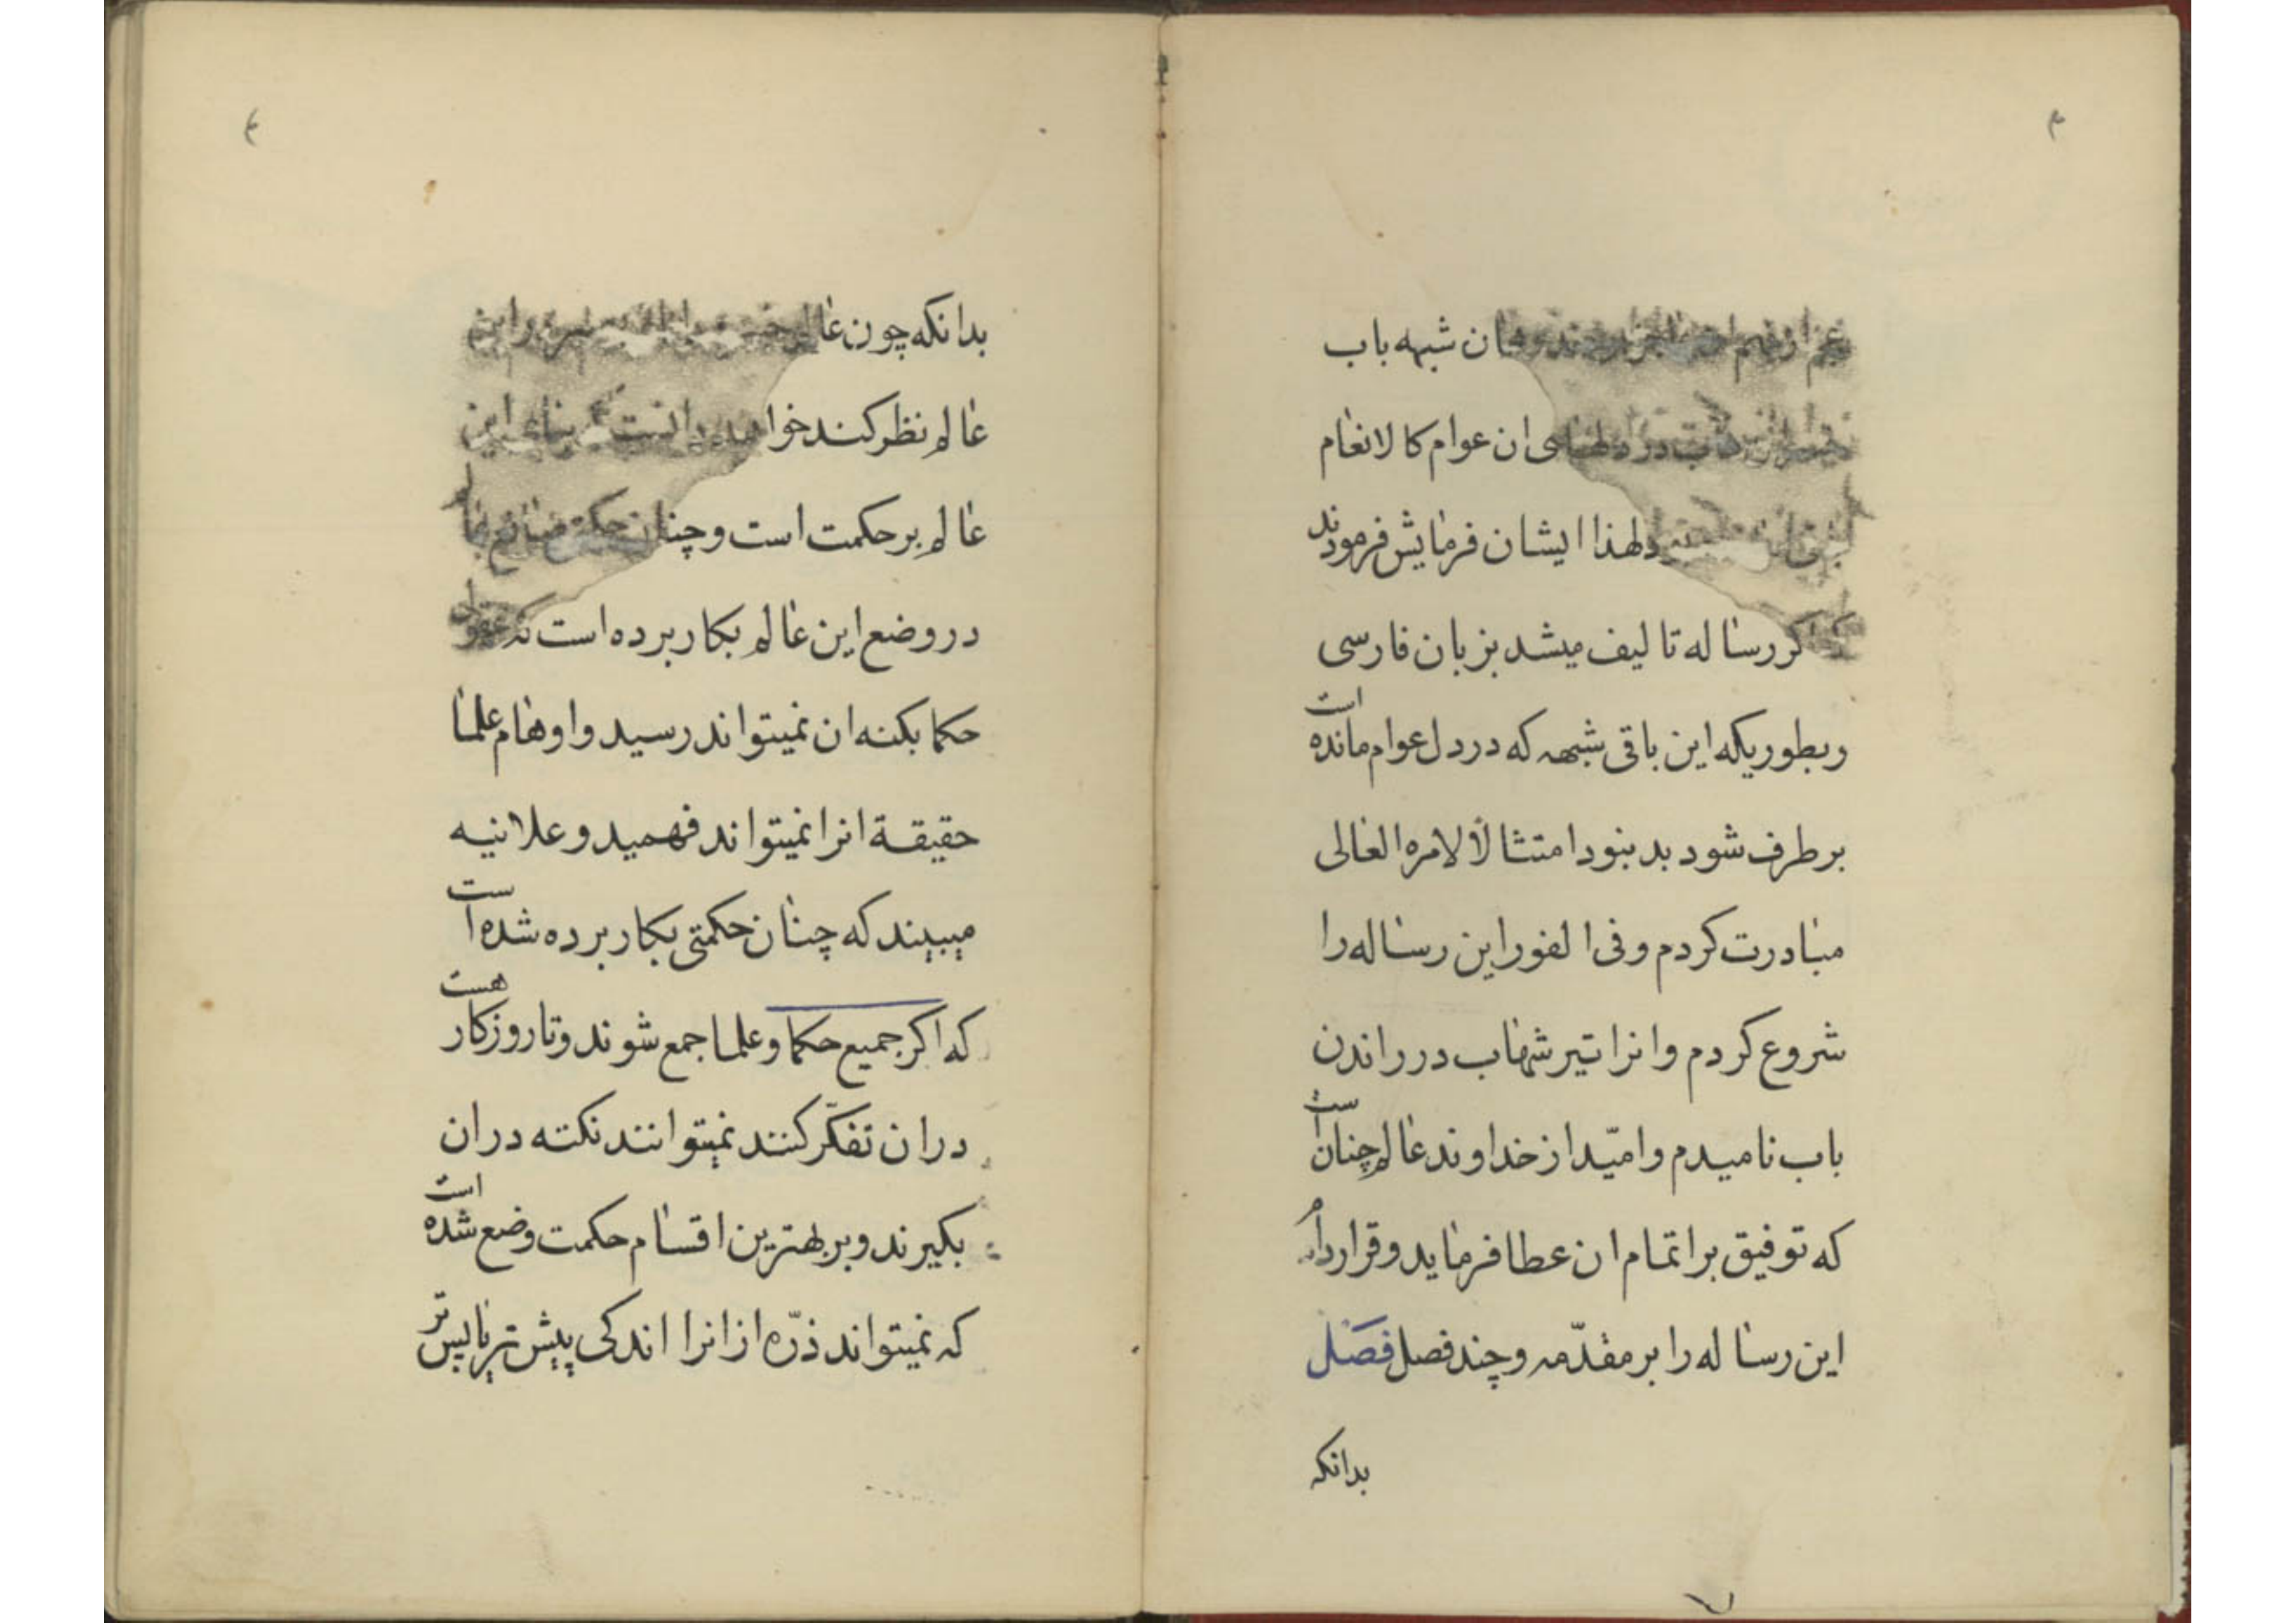 ۳
ان شبهه باب
ان عوام کا لانعام
لهذا ایشان فرمایش فرمودند
کر رساله تالیف میشد بزبان فارسی
و بطوریکه این باقی شبهه که در دل عوام مانده است
بر طرف شود بد بنود امتثالاً لامره العالی
مبادرت کردم و فی الفور این رساله را
شروع کردم و انرا تیر شهاب در راندن
باب نامیدم و امیّد از خداوند عالم چنان است
که توفیق بر اتمام ان عطا فرماید و قرار دادم
این رساله را بر مقدّمه و چند فصل فصل
بدانکه
۴
بدانکه چون
عالم نظر کند خواهد دانست این
عالم بر حکمت است و چنان حکمت
در وضع این عالم بکار برده است که عقول
حکما بکنه ان نمیتواند رسید و اوهام علما
حقیقة انرا نمیتواند فهمید و علانیه
میبیند که چنان حکمتی بکار برده شده است
که اکر جمیع حکما و علما جمع شوند و تا روزکار هست
در ان تفکّر کنند نمیتوانند نکته در ان
بکیرند و بر بهترین اقسام حکمت وضع شده است
که نمیتواند ذرّه از انرا اندکی پیش تر یا پس تر